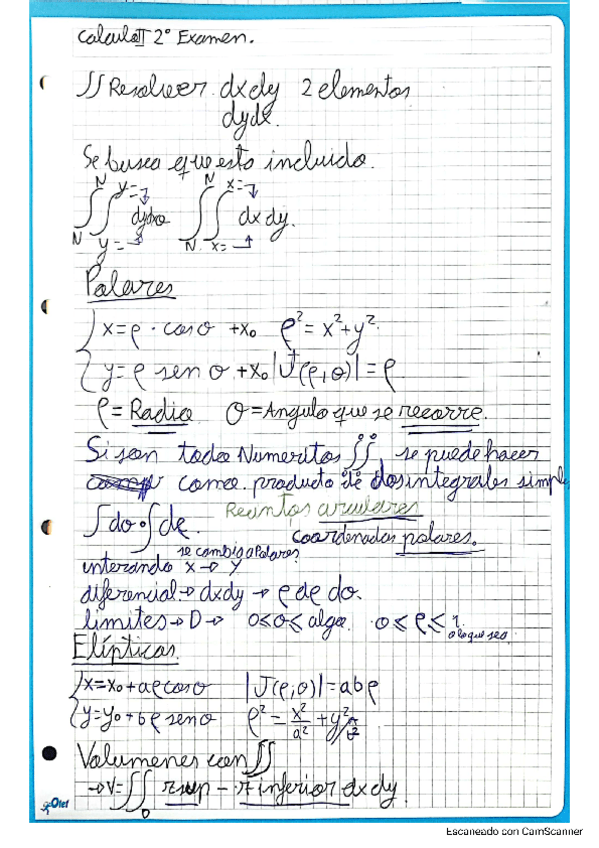 Calculo II 2º Examen.
∬ Resolver dxdy 2 elementos
dydx.
Se busca que esto incluido.
N y= N x=
∬ dydx ∬ dxdy.
N y= N x=
Polares
x=ρ·cosθ +x₀ ρ²=x²+y²
y=ρ senθ +x₀ |J(ρ,θ)|=ρ
ρ=Radio θ=Angulo que se recorre.
Si son todo Numeritos ∬, se puede hacer
como producto de dos integrales simples
∫dθ·∫dρ. Recintos circulares
coordenadas polares.
se cambia a Polares
interando x→y
diferencial→dxdy→ρdρdθ.
limites→D→ 0≤θ≤algo 0≤ρ≤1
o lo que sea.
Elípticas
x=x₀+aρcosθ |J(ρ,θ)|=abρ
y=y₀+bρ senθ ρ²=x²/a²+y²/b²
Volumenes con ∬
→V=∬ zsup - z inferior dxdy
D
Oxford
Escaneado con CamScanner